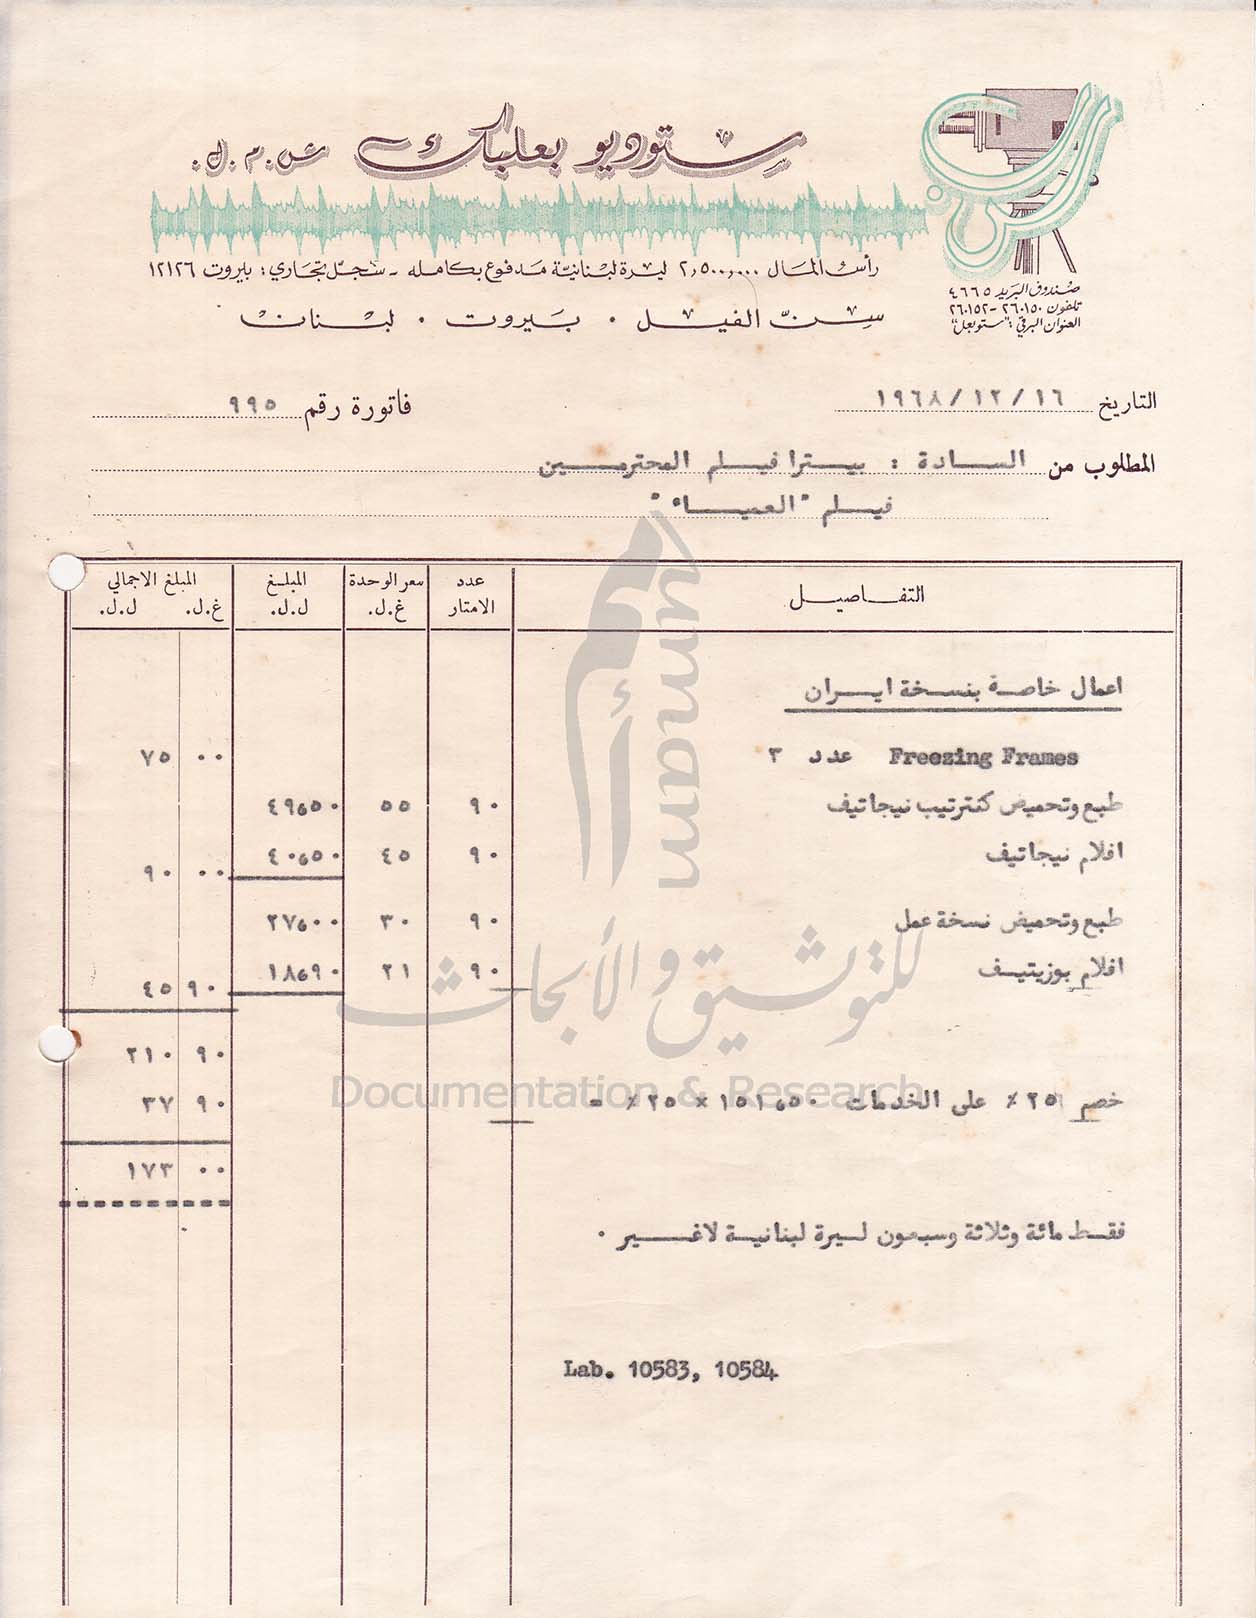 ستوديو بعلبك ش.م.ل.
رأس المال ٢,٥٠٠,٠٠٠ ليرة لبنانية مدفوع بكامله - سجل تجاري: بيروت ١٢١٢٦
سن الفيل . بيروت . لبنان
صندوق البريد ٤٦٦٥
تلفون ٢٦٠١٥٠ - ٢٦٠١٥٢
العنوان البرقي: "ستوبعل"
التاريخ ١٦ / ١٢ / ١٩٦٨ فاتورة رقم ٩٩٥
المطلوب من السادة : بيترا فيلم المحترمين
فيلم "العمياء"
التفاصيل عدد الامتار سعر الوحدة غ.ل. المبلغ ل.ل. المبلغ الاجمالي غ.ل. ل.ل.
اعمال خاصة بنسخة ايران
Freezing Frames عدد ٣ ٠٠ ٧٥
طبع وتحميض كنترتيب نيجاتيف ٩٠ ٥٥ ٤٩،٥٠
افلام نيجاتيف ٩٠ ٤٥ ٤٠،٥٠
٠٠ ٩٠
طبع وتحميض نسخة عمل ٩٠ ٣٠ ٢٧،٠٠
افلام بوزيتيف ٩٠ ٢١ ١٨،٩٠
٩٠ ٤٥
٩٠ ٢١٠
خصم ٢٥٪ على الخدمات ١٥١،٥٠ × ٢٥ ٪ = ٩٠ ٣٧
٠٠ ١٧٣
فقط مائة وثلاثة وسبعون ليرة لبنانية لاغير .
Lab. 10583, 10584
أمم
umam
للتوثيق والأبحاث
Documentation & Research